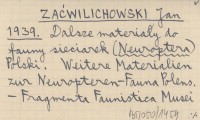 ZAĆWILICHOWSKI Jan
1939. Dalsze materiały do
fauny sieciarek (Neuroptera)
Polski. Weitere Materialien
zur Neuropteren-Fauna Polens.
- Fragmenta Faunistica Musei